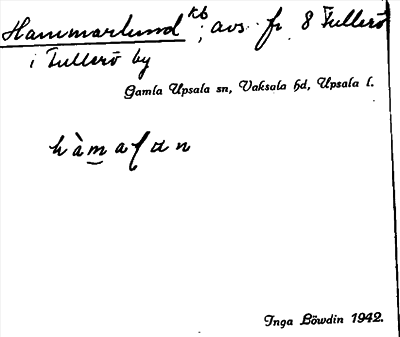 Hammarlund kb; avs. fr. 8 Fullerö
i Fullerö by
Gamla Upsala sn, Vaksala hd, Upsala l.
Inga Böwdin 1942.